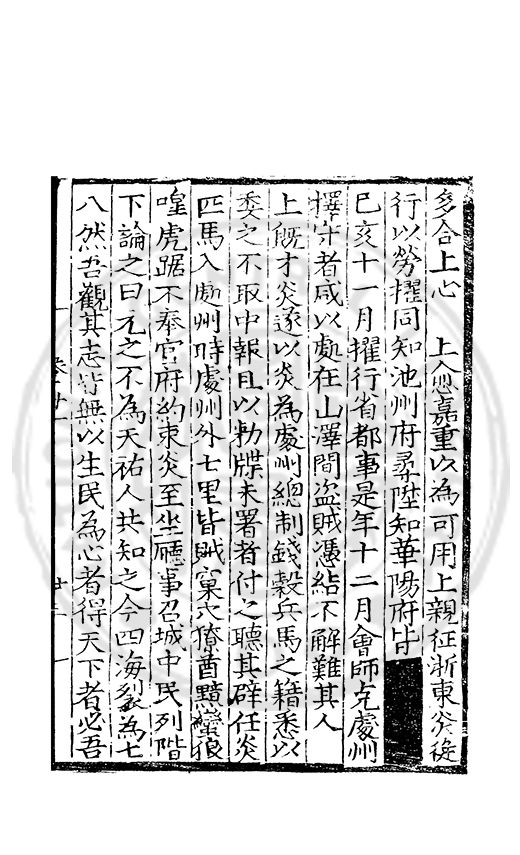 多合上心　上入悉嘉重以為可用上親征浙東炎從
行以勞擢同知池州府尋陞知華陽府皆
已亥十一月擢行省都事是年十二月會師克處州
擇守者咸以處在山澤間盗賊憑結不解難其人
上旣才炎遂以炎為處州緫制錢穀兵馬之籍悉以
委之不取中報且以勑牒未署者付之聽其辟任炎
匹馬入處州時處州外七里皆賊窠穴獠酋黠蠻狼
嘷虎踞不奉官府約束炎至坐廳事召城中民列階
下論之曰元之不為天祐人共知之今四海裂為七
八然吾觀其志皆無以生民為心者得天下者必吾
卷二廿一